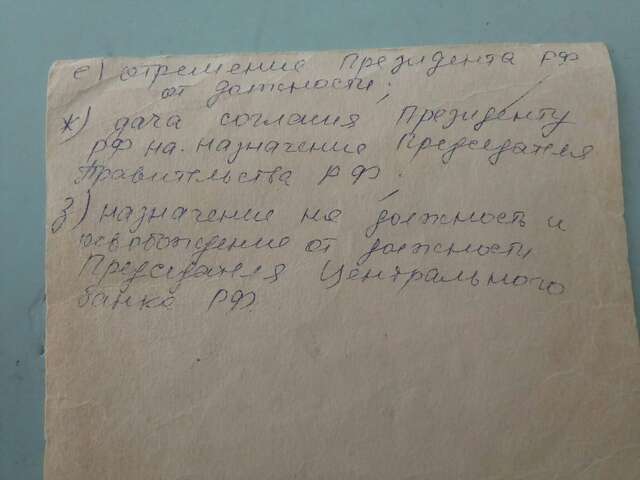 е) отрешение Президента РФ
от должности;
ж) дача согласия Президенту
РФ на назначение Председателя
Правительства РФ;
з) назначение на должность и
освобождение от должности
Председателя Центрального
банка РФ